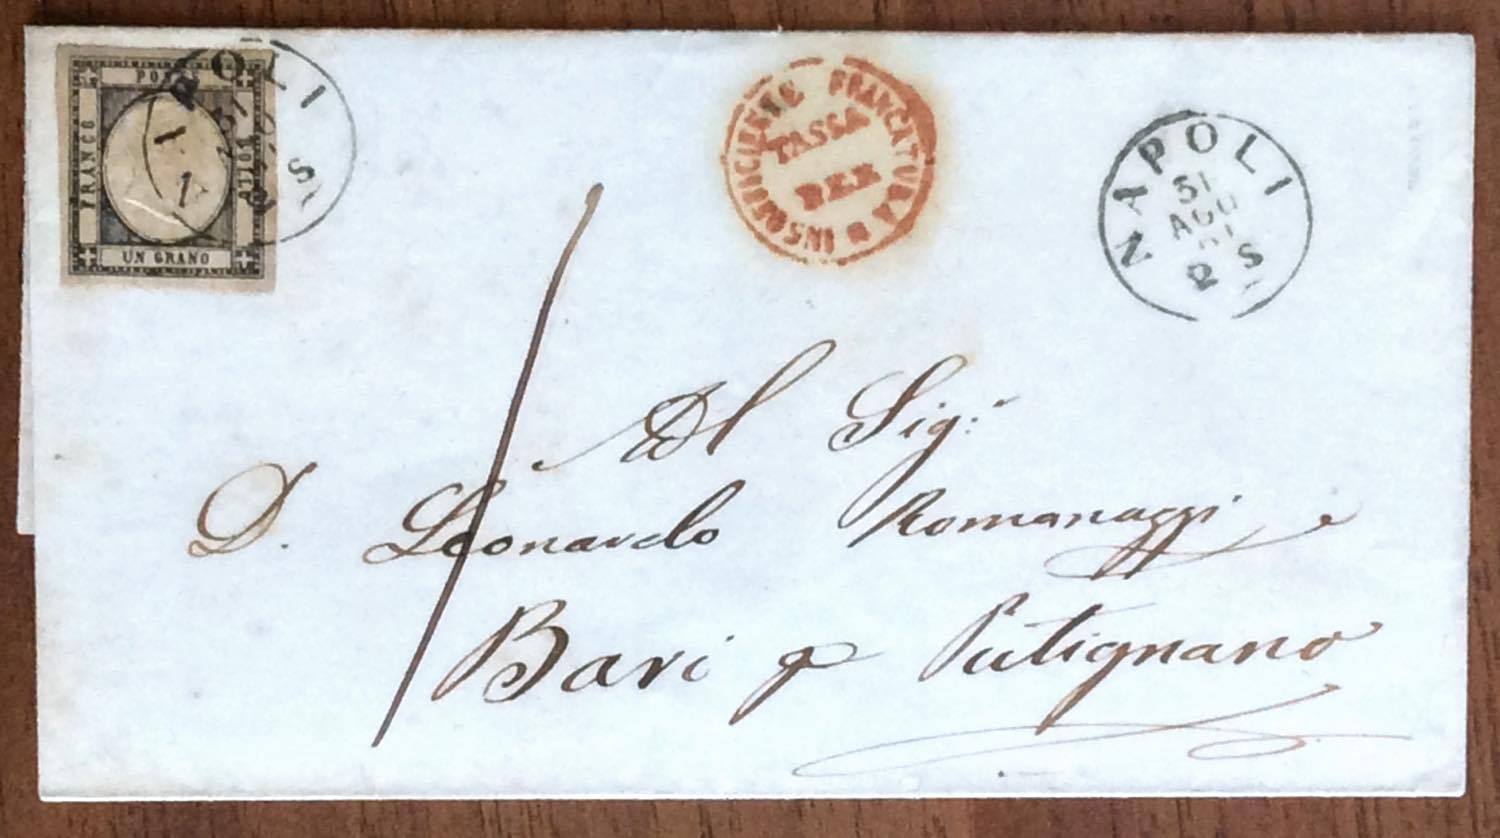 FRANCO
POSTE
BOLLO
UN GRANO
NAPOLI
FRANCATURA INSUFFICIENTE
TASSA
PER
NAPOLI
31
AGO
61
2 S
Al Sig.r
D. Leonardo Romanazzi
Bari p Putignano